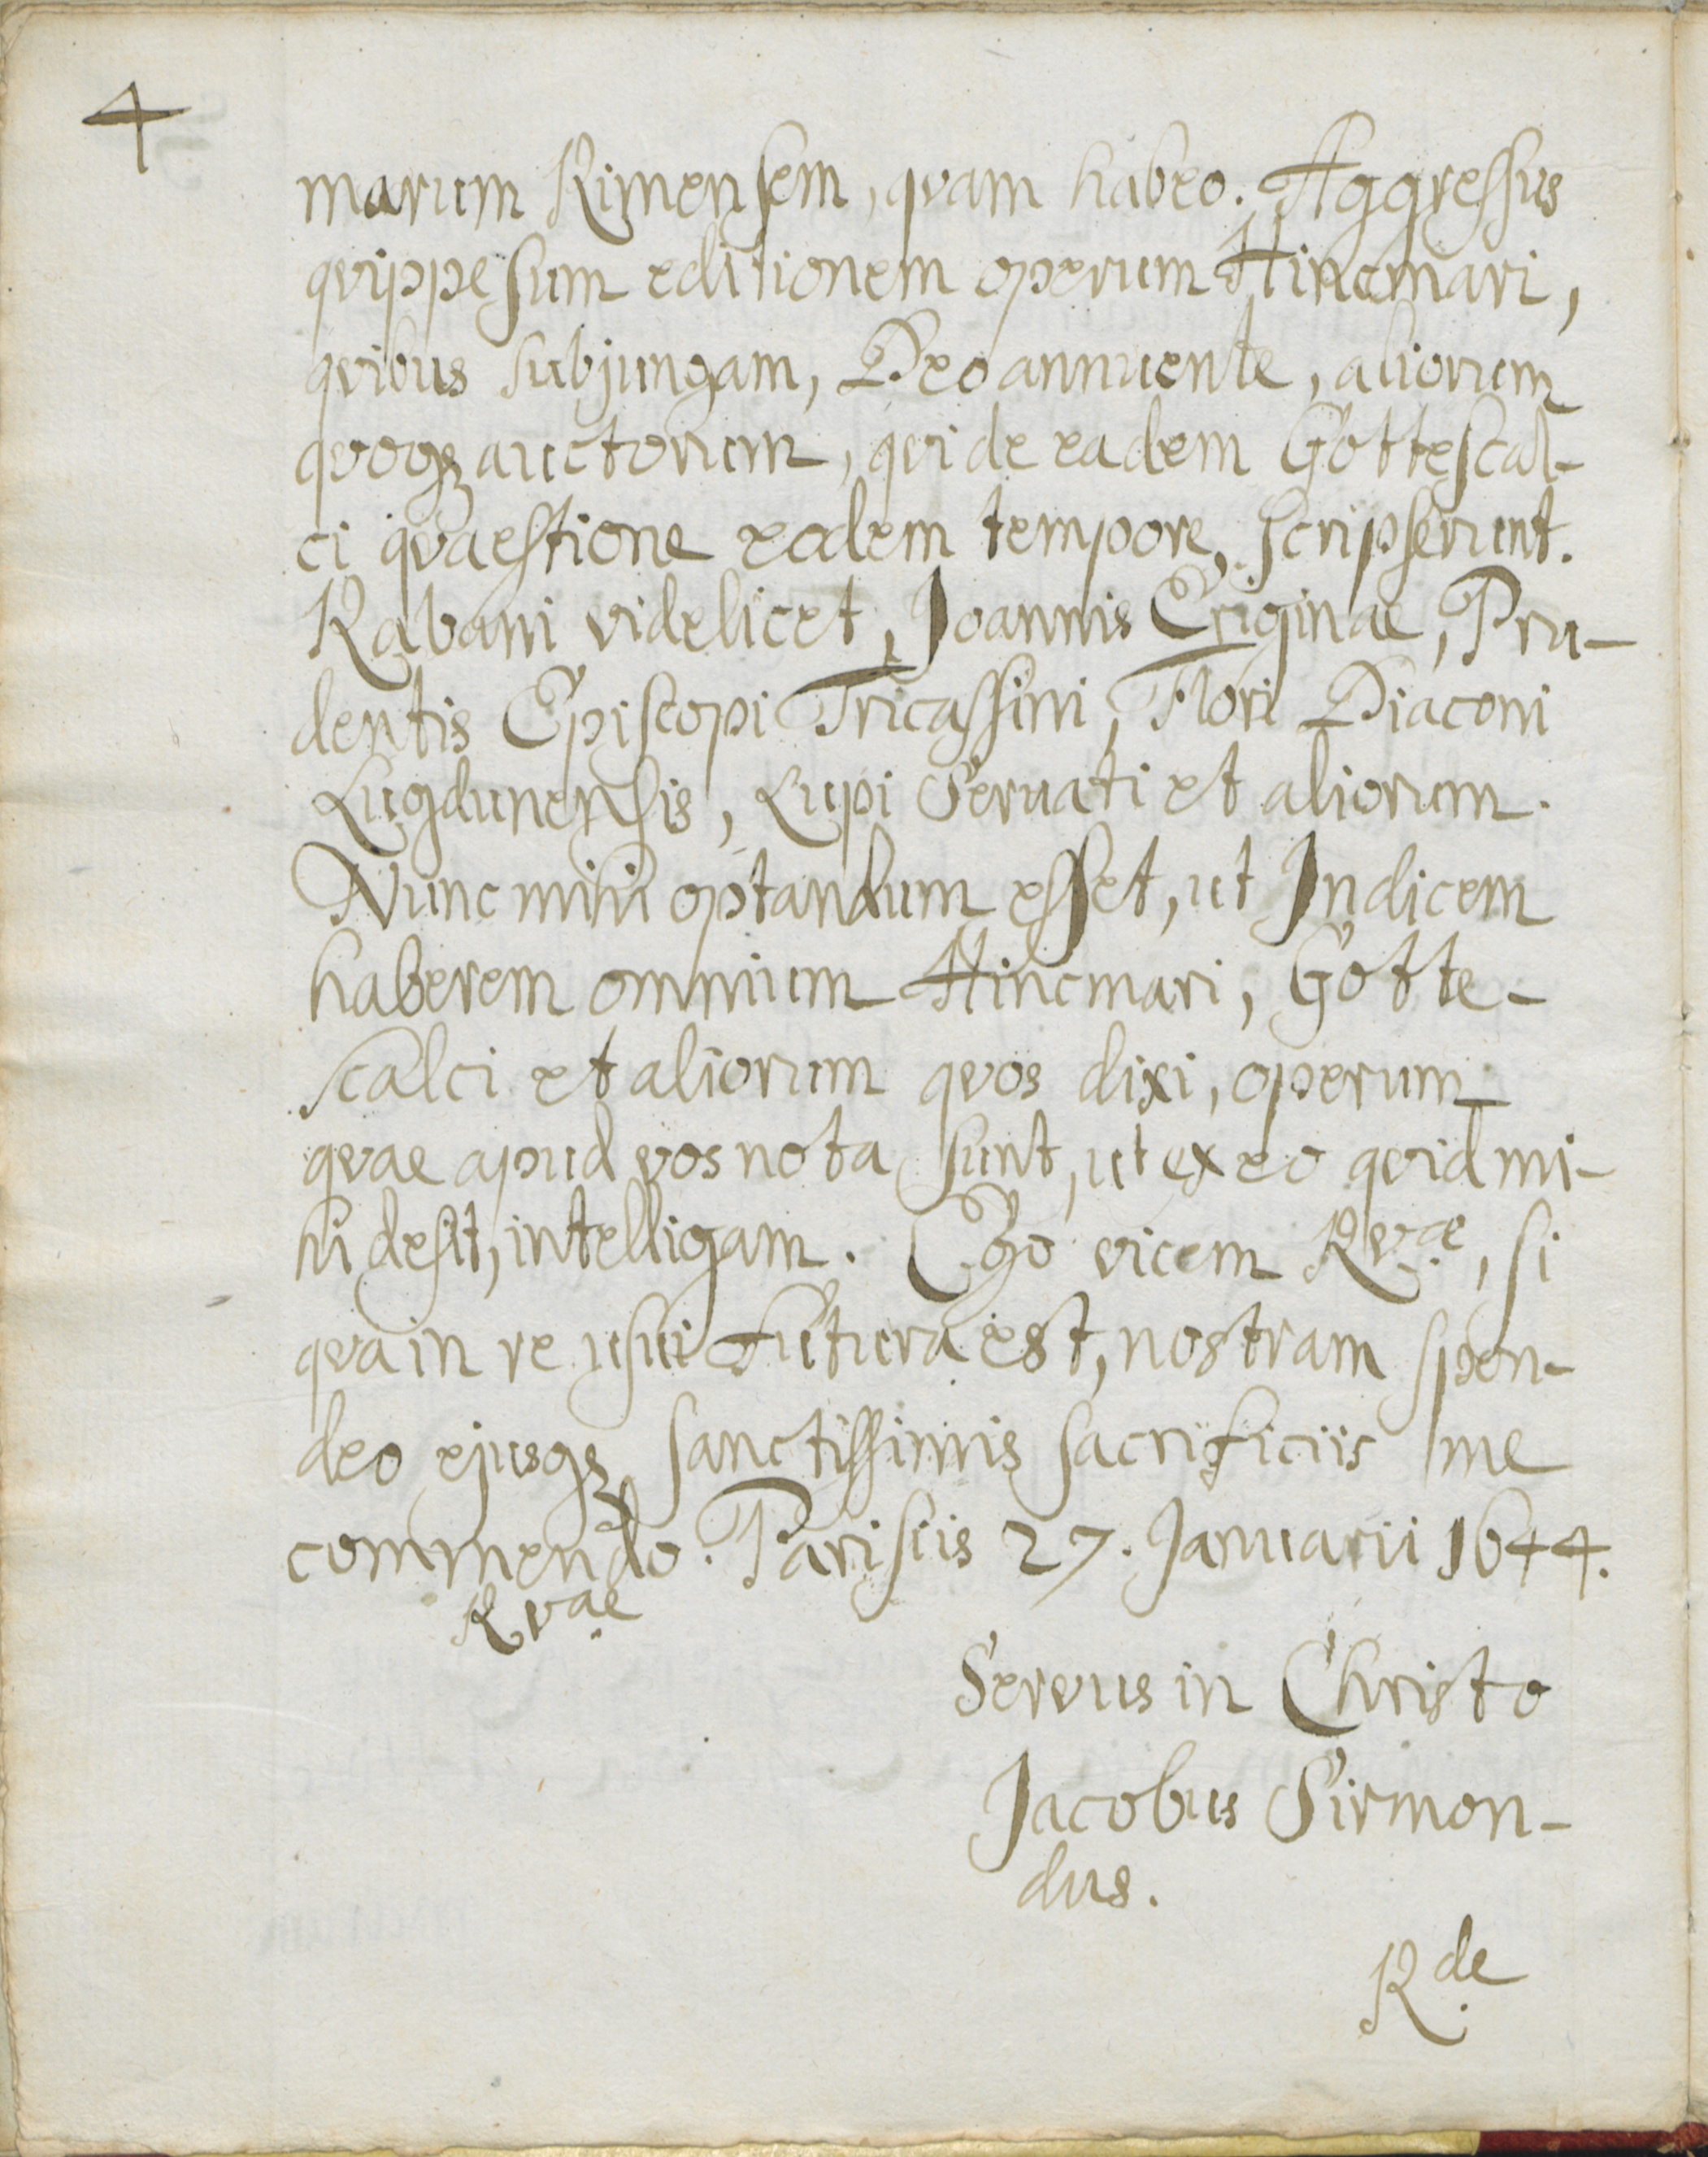 4
marum Rimensem, qvam habeo. Aggressus
qvippe sum editionem operum Hincmari,
qvibus subjungam, Deo annuente, aliorum
qvoqꝫ auctorum, qvi de eadem Gottescal-
ci qvaestione eodem tempore, scripserunt.
Rabani videlicet, Joannis Eriginae, Pru-
dentis Episcopi Tricassini, Flori Diaconi
Lugdunensis, Lupi Servati et aliorum.
Nunc mihi optandum esset, ut Indicem
haberem omnium Hincmari, Gotte-
scalci et aliorum qvos dixi, operum
qvae apud vos nota sunt, ut ex eo qvid mi-
hi desit, intelligam. Ego vicem Rvae, si
qva in re usui futura est, nostram spon-
deo ejusqꝫ sanctissimis sacrificiis me
commendo. Parisiis 27. Januarii 1644.
Rvae
Servus in Christo
Jacobus Sirmon-
dus.
Rde